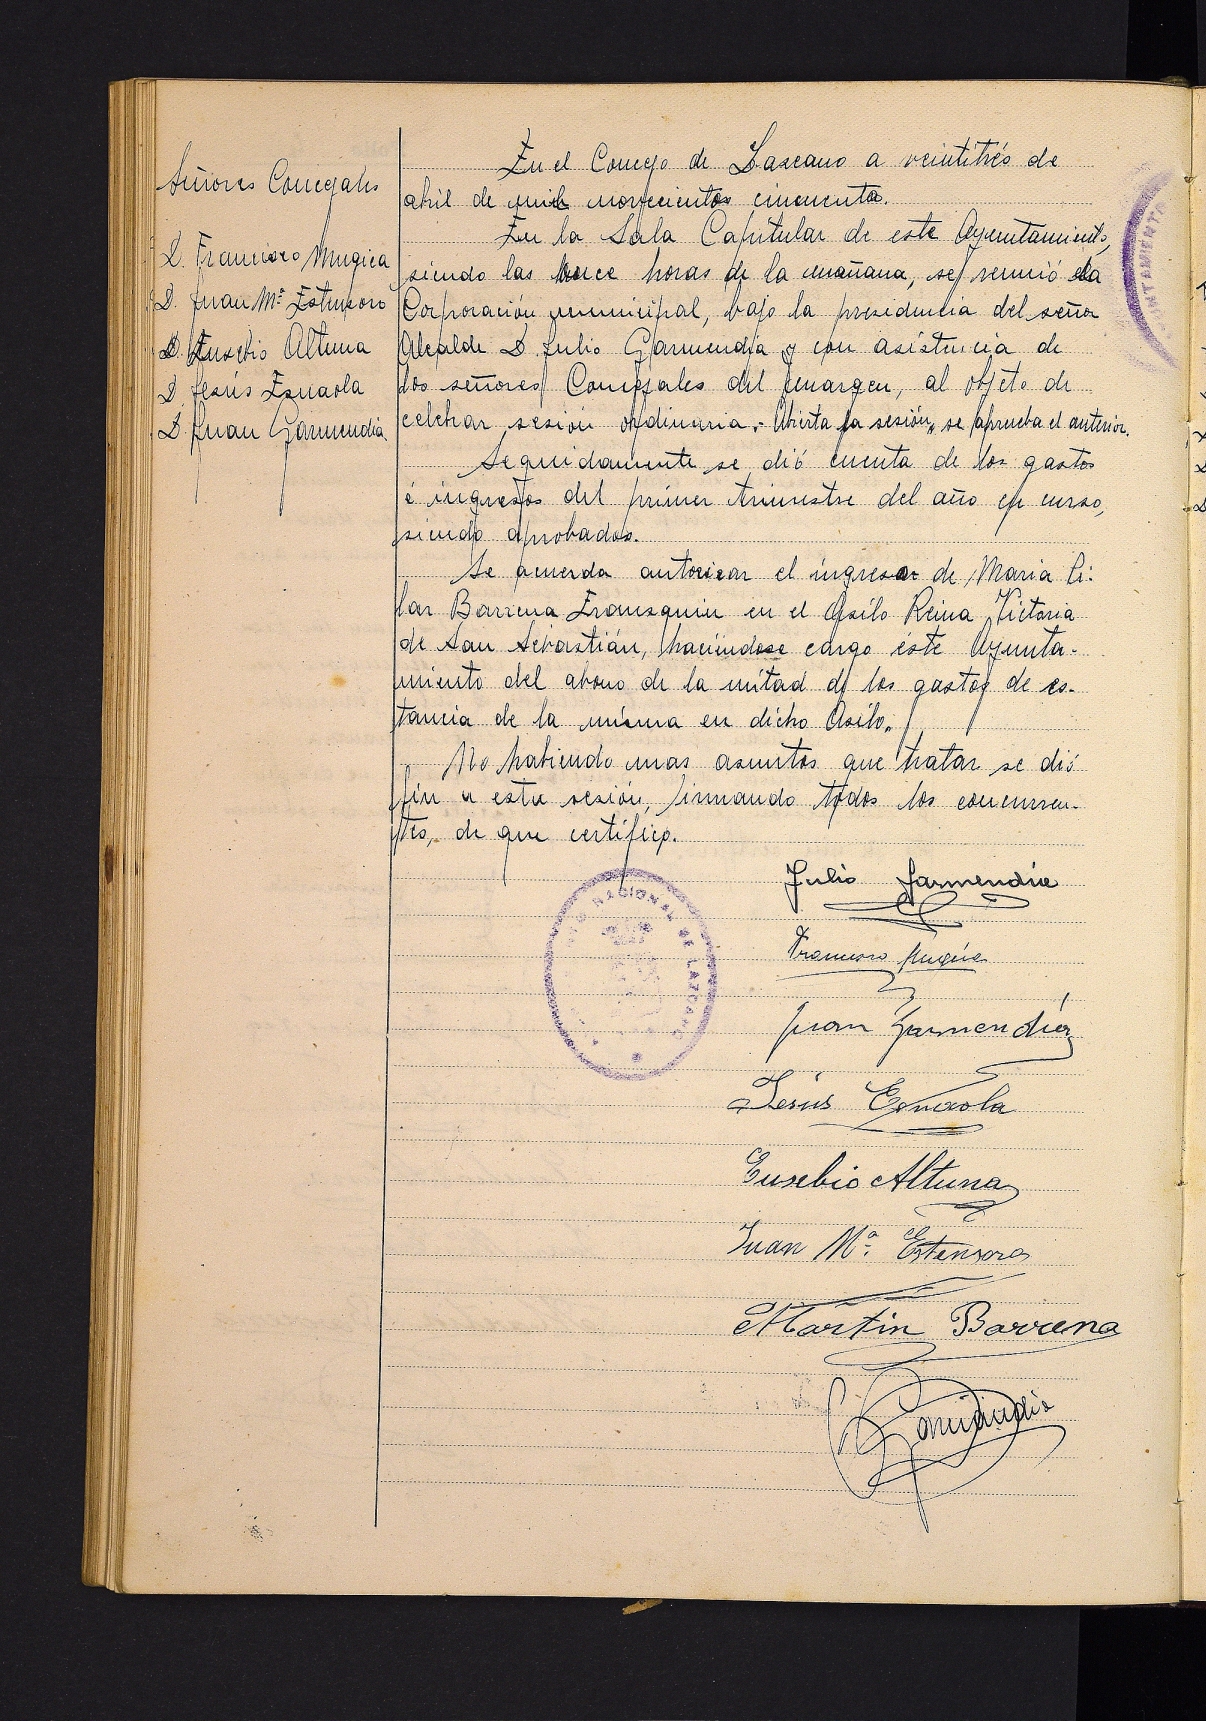 Señores Concejales
D. Francisco Mugica
D. Juan Mª Estensoro
D. Eusebio Altuna
D Jesús Eznaola
D. Juan Garmendia.
En el Concejo de Lazcano a veintitrés de
abril de mil novecientos cincuenta.
En la Sala Capitular de este Ayuntamiento,
siendo las once horas de la mañana, se reunió la
Corporación municipal, bajo la presidencia del señor
Alcalde D. Julio Garmendia y con asistencia de
los señores Concejales del margen, al objeto de
celebrar sesión ordinaria.- Abierta la sesión, se aprueba el anterior.
Seguidamente se dió cuenta de los gastos
é ingresos del primer trimestre del año en curso,
siendo aprobados.
Se acuerda autorizar el ingreso de Maria Pi-
lar Barrena en el Asilo Reina Victoria
de San Sebastián, haciéndose cargo éste Ayunta-
miento del abono de la mitad de los gastos de es-
tancia de la misma en dicho Asilo.
No habiendo mas asuntos que tratar se dió
fin a esta sesión, firmando todos los concurren-
tes, de que certifico.
Julio Garmendia
NACIONAL DE LAZCANO
Francisco Mugica
Juan Garmendia
Jesús Eznaola
Eusebio Altuna
Juan Mª. Estensoro
Martin Barrena
Garmendia
AYUNTAMIENTO